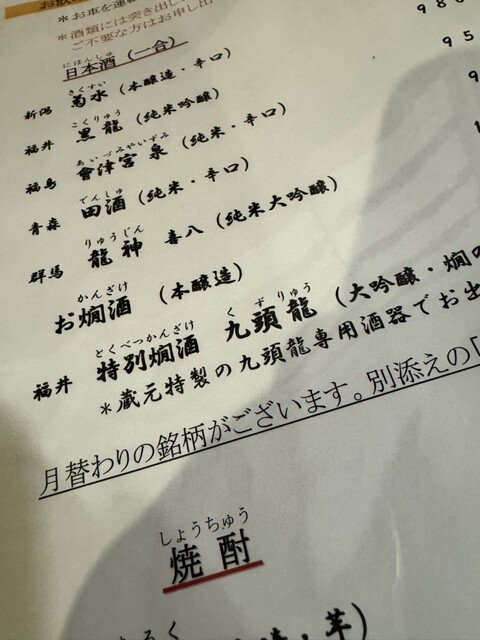 *お車を運転
*酒類には突き出し
ご不要な方はお申し出
にほんしゅ
日本酒(一合)
きくすい
新潟 菊水 (本醸造・辛口)
こくりゅう
福井 黒龍 (純米吟醸)
あいづみやいずみ
福島 會津宮泉 (純米・辛口)
でんしゅ
青森 田酒 (純米・辛口)
りゅうじん
群馬 龍神 喜八 (純米大吟醸)
かんざけ
お燗酒 (本醸造)
とくべつかんざけ くずりゅう
福井 特別燗酒 九頭龍 (大吟醸・燗
*蔵元特製の九頭龍専用酒器でお出
月替わりの銘柄がございます。別添えの「
しょうちゅう
焼酎
980
95